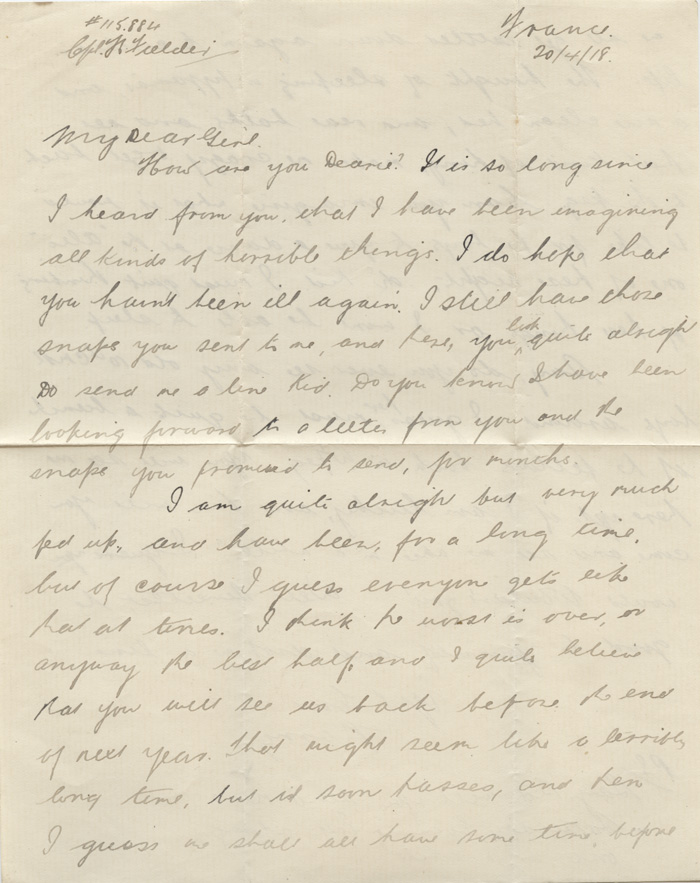 #115.884
Cpl. R Fielder
France.
20/4/18.
My Dear Girl.
How are you Dearie? It is so long since
I heard from you, that I have been imagining
all kinds of horrible things. I do hope that
you hav'nt been ill again. I still have those
snaps you sent to me, and here, you look quite alright
Do send me a line Kid. Do you know, I have been
looking forward to a letter from you and the
snaps you promised to send, for months.
I am quite alright but very much
fed up, and have been, for a long time,
but of course I guess everyone gets like
that at times. I think the worst is over, or
anyway the best half, and I quite believe
that you will see us back before the end
of next year. That might seem like a terribly
long time, but it soon passes, and then
I guess we shall all have some time, before